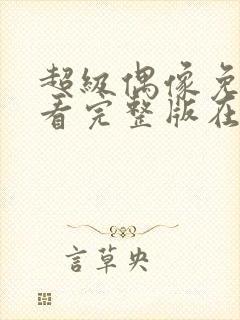 超级偶像免
看完整版在
言草央